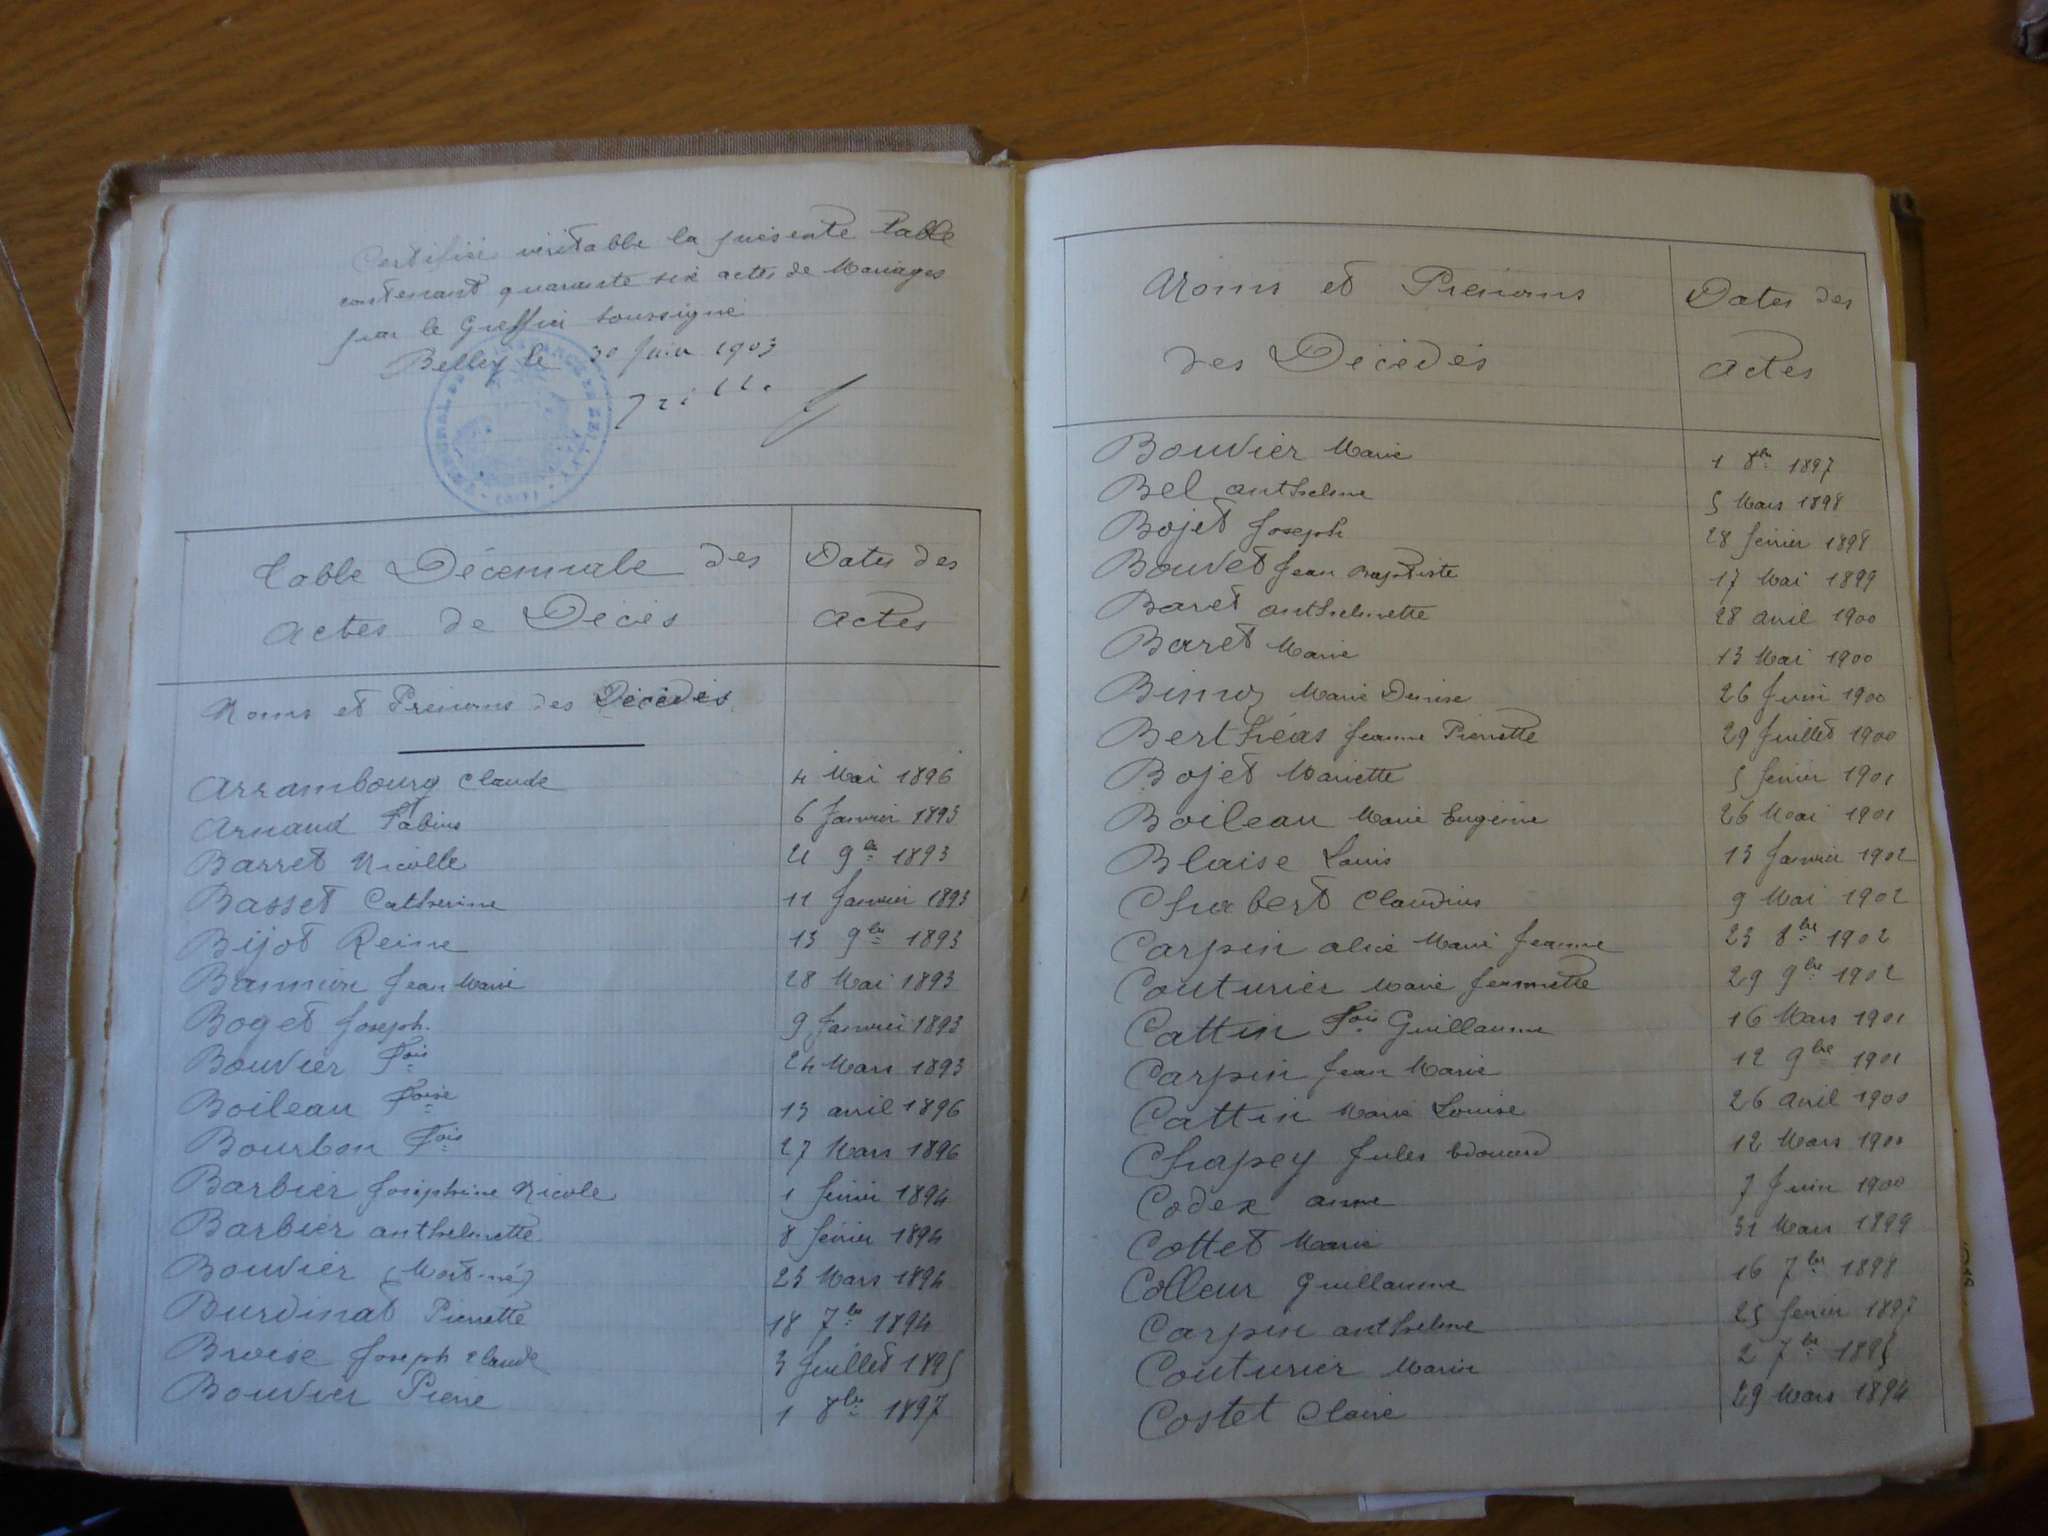 Certifiée véritable la présente table
contenant quarante six actes de Mariages
par le Greffier soussigné
Belley le 30 Juin 1903
Table Décennale des Dates des
actes de Décès actes
Noms et Prénoms des Décédés
Arrambourg Claude 4 Mai 1896
Arnaud Fabius 6 Janvier 1893
Barret Nicolle 21 9bre 1893
Basset Catherine 11 Janvier 1893
Bijot Reine 13 9bre 1893
Jean Marie 28 Mai 1893
Boget Joseph 9 Janvier 1893
Bouvier Fois 24 Mars 1893
Boileau Foise 13 avril 1896
Bourbon Fois 27 Mars 1896
Barbier Joséphine Nicole 1 février 1894
Barbier anthelmette 8 février 1894
Bouvier (Mort-né) 23 Mars 1894
Burdinat Pierrette 18 7bre 1894
Broise Joseph Claude 3 Juillet 1895
Bouvier Pierre 1 8bre 1897
Noms et Prénoms Dates des
des Décédés actes
Bouvier Marie 1 8bre 1897
Bel anthelme 5 Mars 1898
Bojet Joseph 28 février 1898
Bouvet Jean Baptiste 17 Mai 1899
Baret anthelmette 28 avril 1900
Baret Marie 13 Mai 1900
Marie Denise 26 Juin 1900
Berthéas Jeanne Pierrette 29 Juillet 1900
Bojet Mariette 5 février 1901
Boileau Marie Eugénie 26 Mai 1901
Blaise Louis 13 Janvier 1902
Chabert Claudius 9 Mai 1902
Carpin alice Marie Jeanne 23 8bre 1902
Couturier Marie Jeannette 29 9bre 1902
Cattin Fois Guillaume 16 Mars 1901
Carpin Jean Marie 12 9bre 1901
Cattin Marie Louise 26 avril 1900
Chapey Jules Edouard 12 Mars 1900
Codex anne 7 Juin 1900
Cottet Marie 31 Mars 1899
Colleur Guillaume 16 7bre 1898
Carpin anthelme 25 février 1897
Couturier Marie 2 7bre 1895
Costet Claire 29 Mars 1894